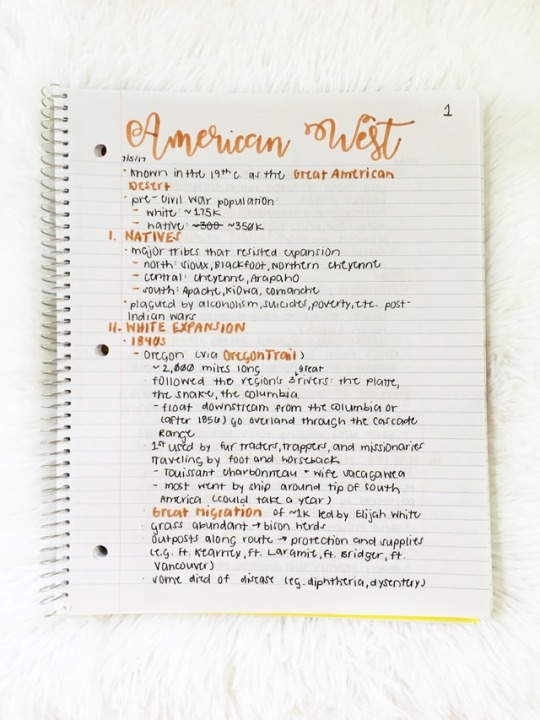 1
American West
7/5/17
· known in the 19th c. as the Great American
Desert
· pre-civil war population:
- white: ~175K
- native: ~300 ~350K
I. NATIVES
· major tribes that resisted expansion
- north: Sioux, Blackfoot, Northern Cheyenne
- central: Cheyenne, Arapaho
- South: Apache, Kiowa, Comanche
· plagued by alcoholism, suicides, poverty, etc. post-
Indian wars
II. WHITE EXPANSION
· 1840s
- Oregon (via Oregon Trail)
· ~2,000 miles long
· followed the region's 3 great rivers: the Platte,
the Snake, the Columbia
- float downstream from the Columbia or
(after 1856) go overland through the Cascade
Range
· 1st used by fur traders, trappers, and missionaries
traveling by foot and horseback
- Touissant Charbonneau + wife Sacagawea
- most went by ship around tip of South
America (could take a year)
· Great Migration of ~1K led by Elijah White
· grass abundant → bison herds
· outposts along route → protection and supplies
(e.g. Ft. Kearney, Ft. Laramie, Ft. Bridger, Ft.
Vancouver)
· some died of disease (eg. diphtheria, dysentery)